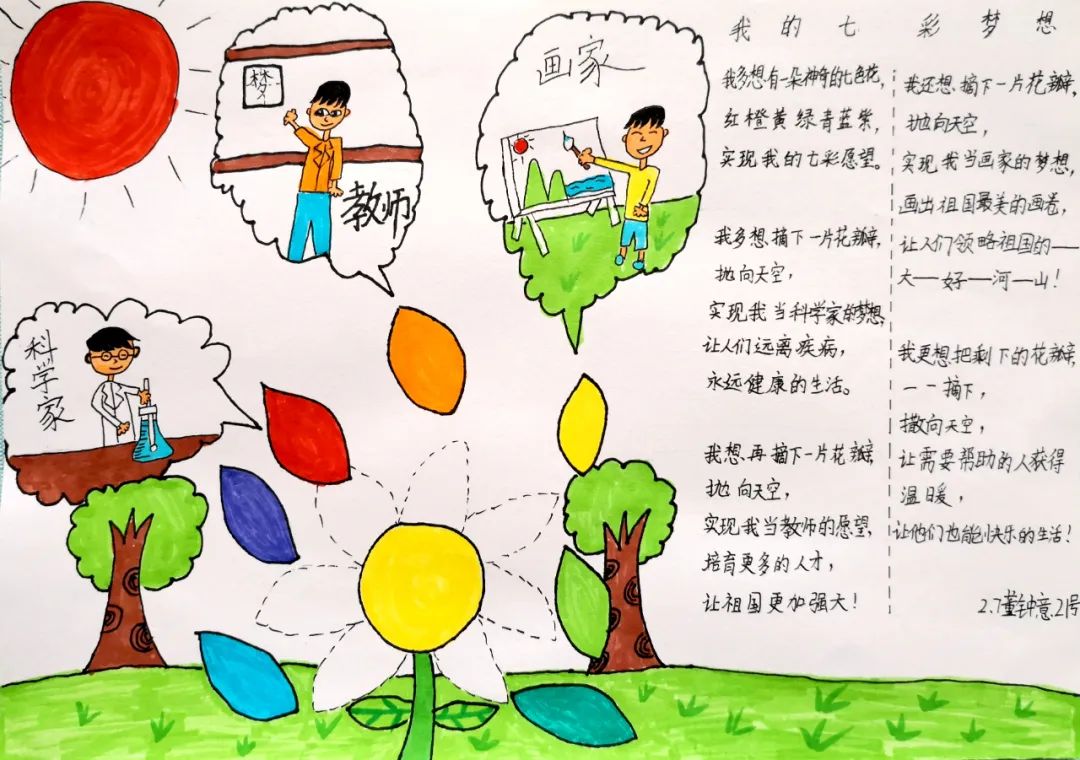 我的七彩梦想
我多想有一朵神奇的七色花,
红橙黄绿青蓝紫,
实现我的七彩愿望。
我多想摘下一片花瓣,
抛向天空,
实现我当科学家的梦想,
让人们远离疾病,
永远健康的生活。
我想再摘下一片花瓣
抛向天空,
实现我当教师的愿望,
培育更多的人才,
让祖国更加强大!
我还想摘下一片花瓣,
抛向天空,
实现我当画家的梦想,
画出祖国最美的画卷,
让人们领略祖国的——
大—好—河—山!
我更想把剩下的花瓣,
一一摘下,
撒向天空,
让需要帮助的人获得
温暖,
让他们也能快乐的生活!
2.7董钟意.21号
梦
教师
画家
科学家